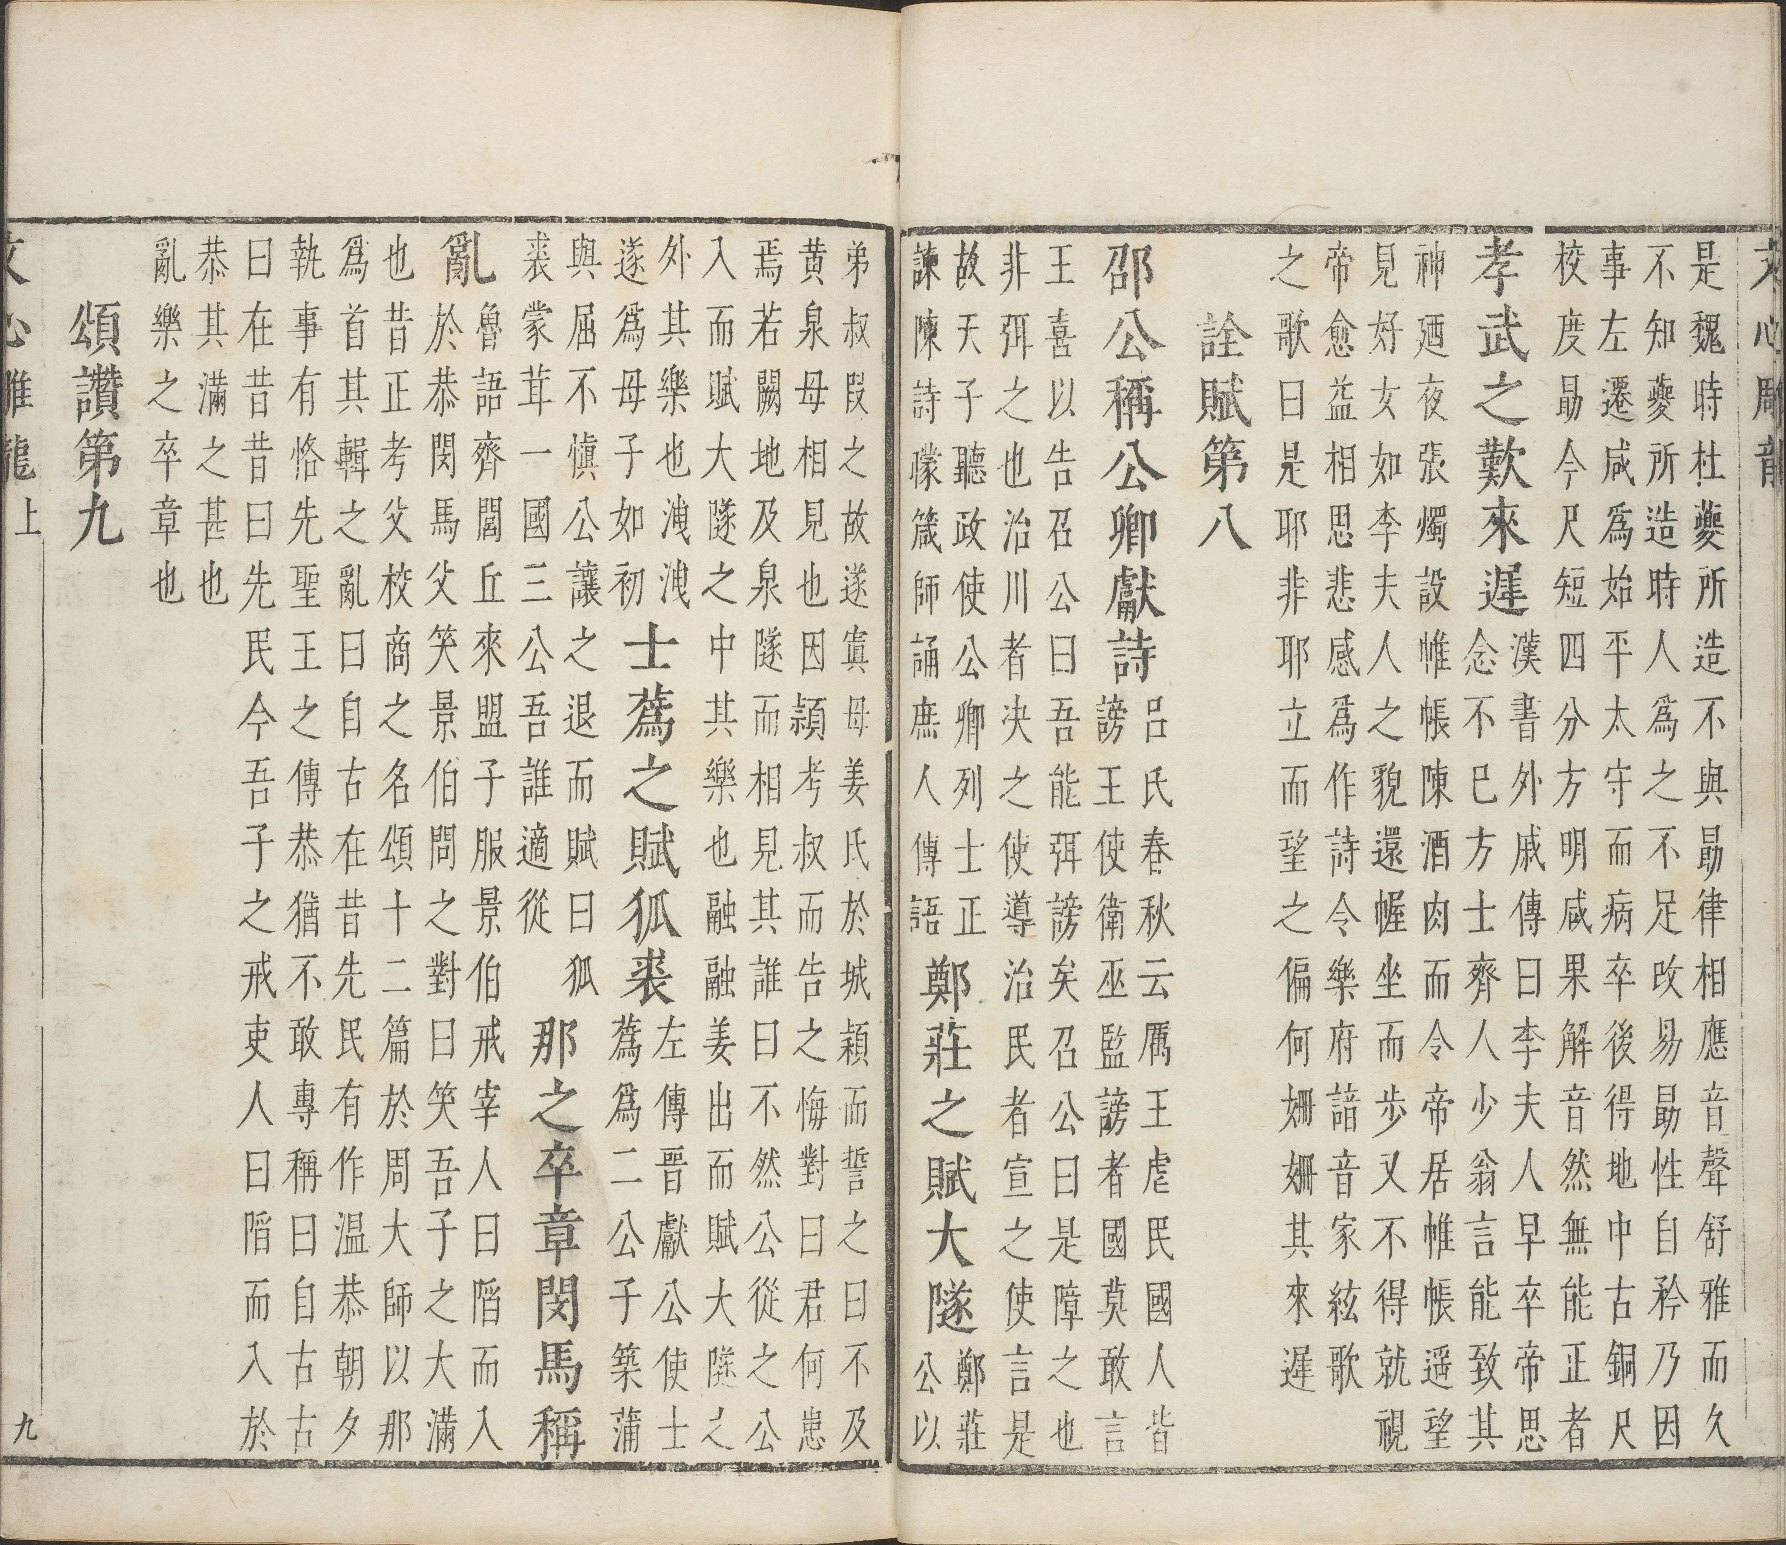 文心雕龍
是魏時杜夔所造不與勗律相應音聲舒雅而久
不知夔所造時人爲之不足改易勗性自矜乃因
事左遷咸爲始平太守而病卒後得地中古銅尺
校度勗今尺短四分方明咸果解音然無能正者
孝武之歎來遲
漢書外戚傳曰李夫人早卒帝思
念不已方士齊人少翁言能致其
神廼夜張燭設帷帳陳酒肉而令帝居帷帳遥望
見好女如李夫人之貌還幄坐而步又不得就視
帝愈益相思悲感爲作詩令樂府諸音家絃歌
之歌曰是耶非耶立而望之偏何姍姍其來遲
詮賦第八
邵公稱公卿獻詩
呂氏春秋云厲王虐民國人皆
謗王使衛巫監謗者國莫敢言
王喜以告召公曰吾能弭謗矣召公曰是障之也
非弭之也治川者决之使導治民者宣之使言是
故天子聽政使公卿列士正
諫陳詩矇箴師誦庶人傳語
鄭莊之賦大隧
鄭莊
公以
弟叔段之故遂寘母姜氏於城潁而誓之曰不及
黄泉母相見也因潁考叔而告之悔對曰君何患
焉若闕地及泉隧而相見其誰曰不然公從之公
入而賦大隧之中其樂也融融姜出而賦大隧之
外其樂也洩洩
遂爲母子如初
士蒍之賦狐裘
左傳晉獻公使士
蒍爲二公子築蒲
與屈不慎公讓之退而賦曰狐
裘蒙茸一國三公吾誰適從
那之卒章閔馬稱
亂
魯語齊閭丘來盟子服景伯戒宰人曰陷而入
於恭閔馬父笑景伯問之對曰笑吾子之大滿
也昔正考父校商之名頌十二篇於周大師以那
爲首其輯之亂曰自古在昔先民有作温恭朝夕
執事有恪先聖王之傳恭猶不敢專稱曰自古古
曰在昔昔曰先民今吾子之戒吏人曰陷而入於
恭其滿之甚也
亂樂之卒章也
頌讚第九
文心雕龍上
九